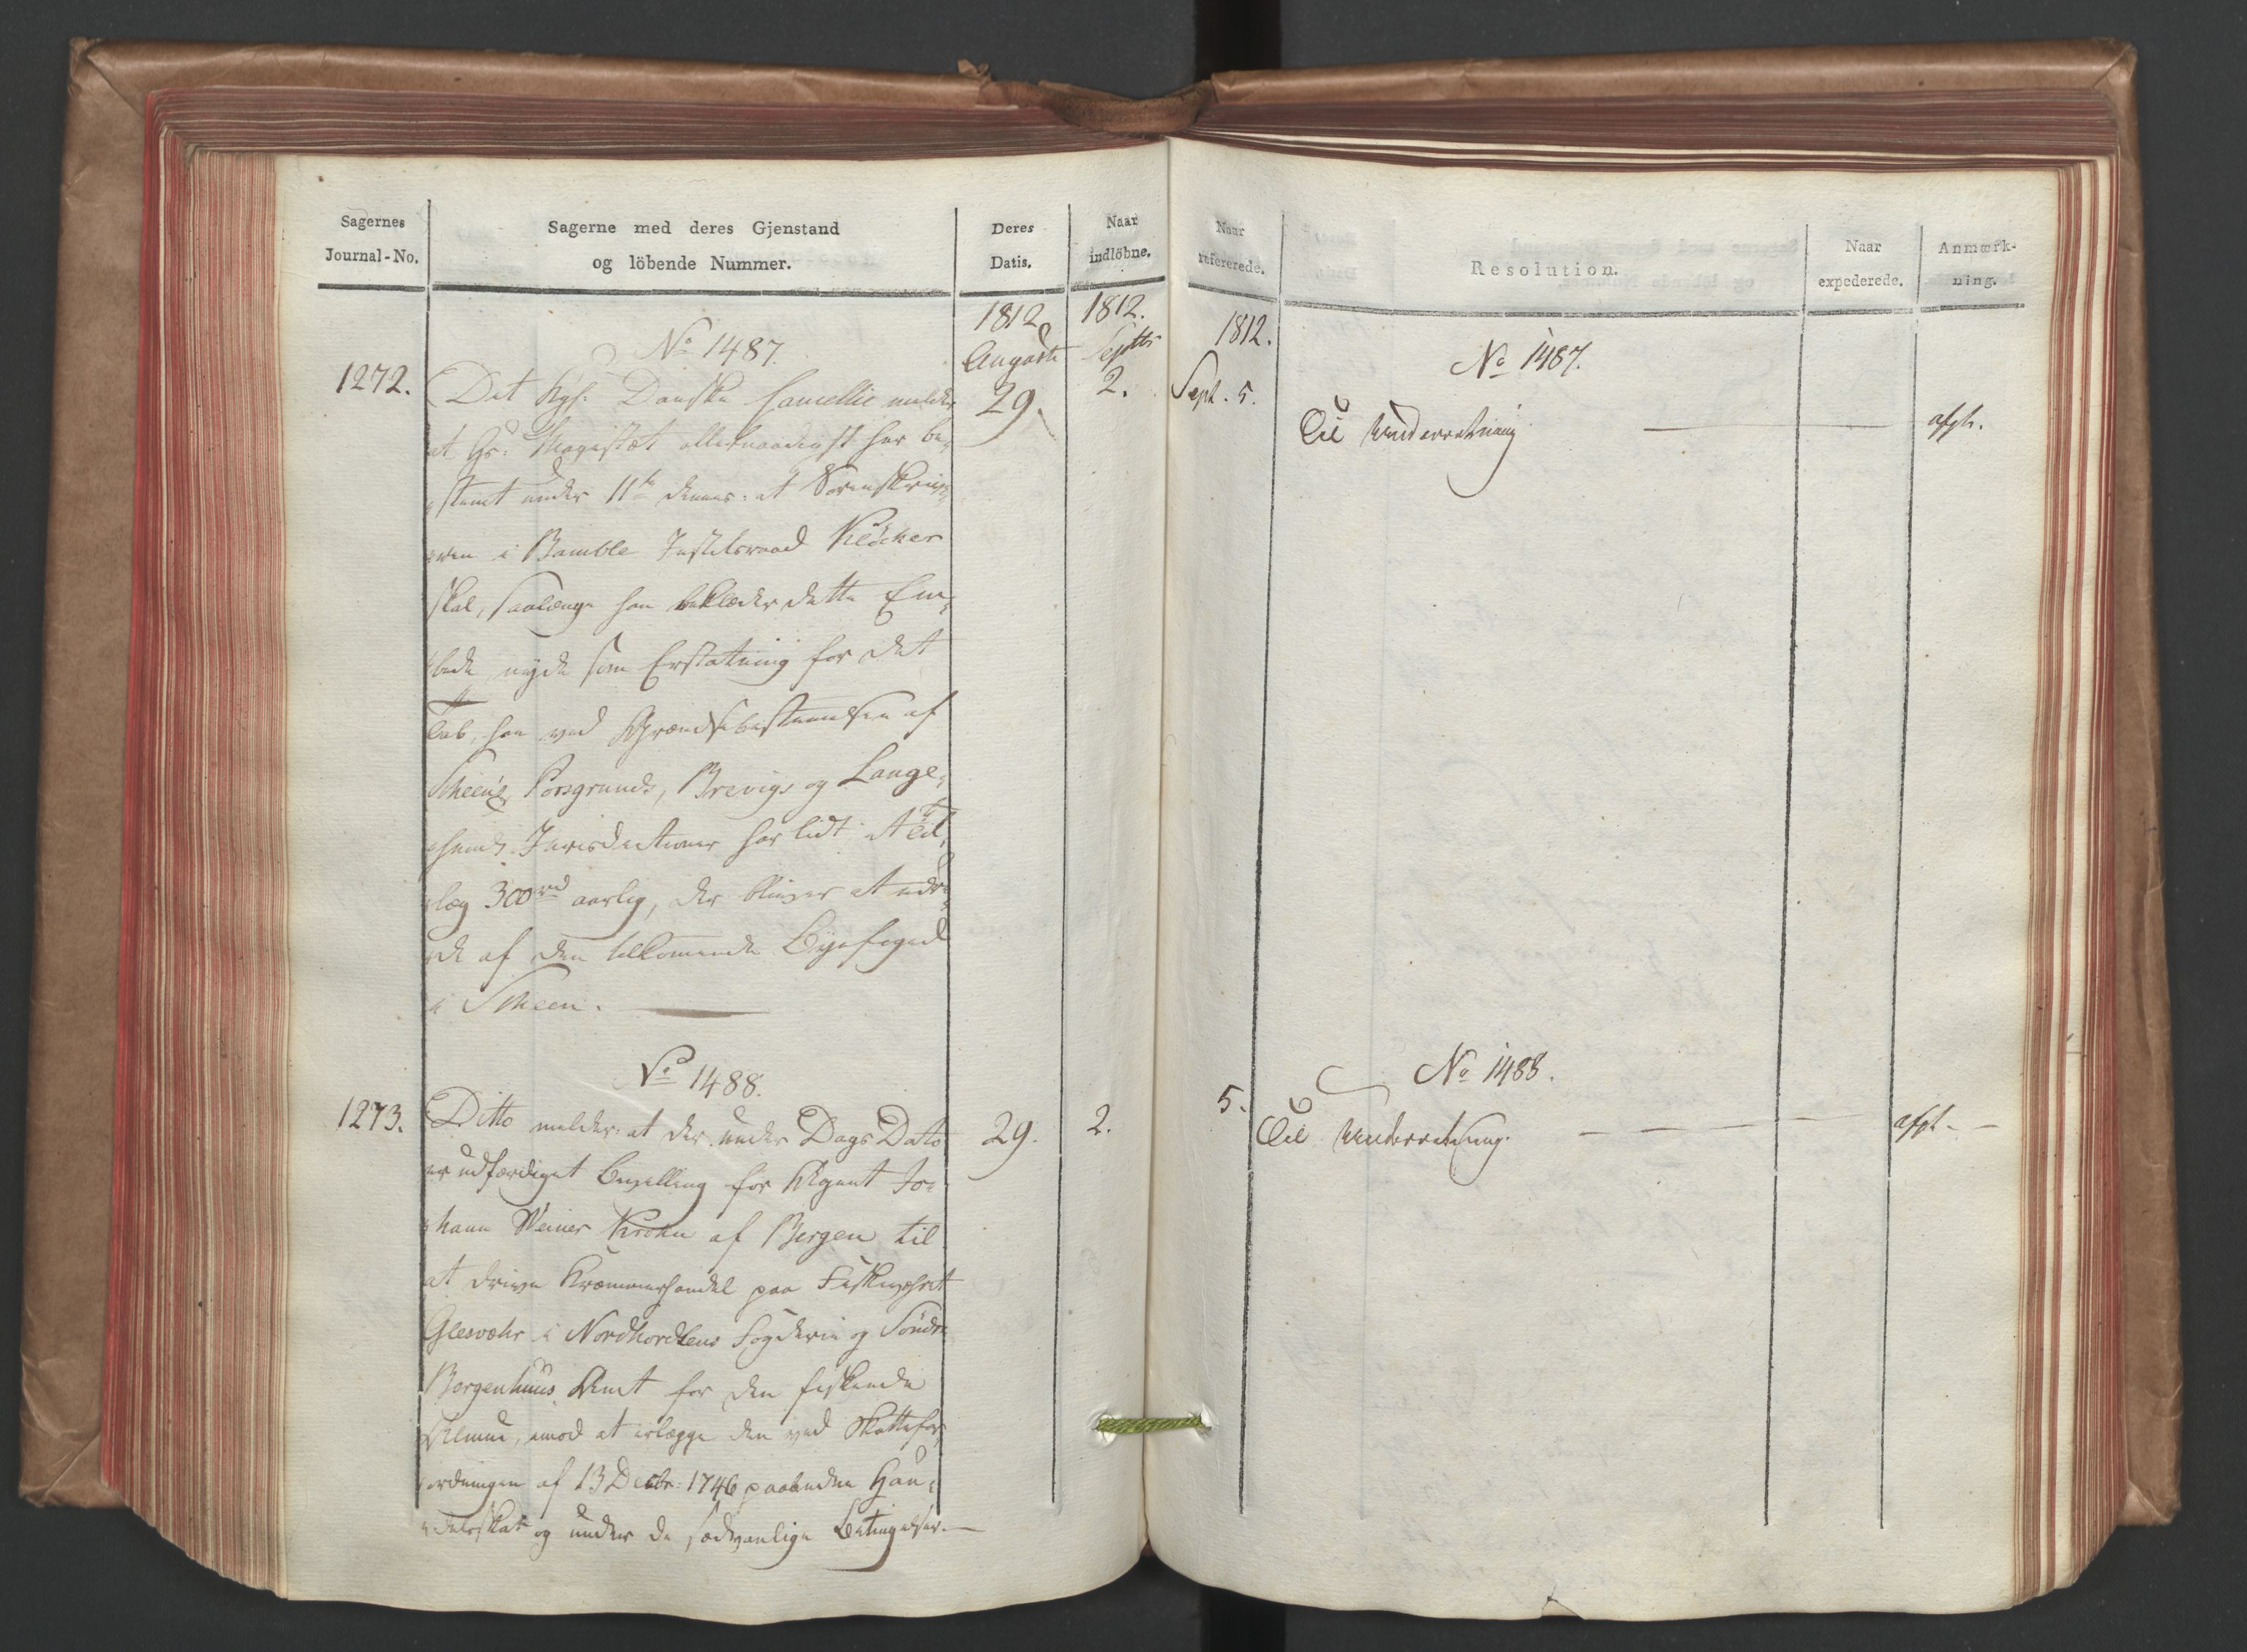 Sagernes
Journal-No.
Sagerne med deres Gjenstand
og löbende Nummer.
Deres
Datis.
Naar
indlöbne.
1812
1812.
Auguste
Septbr
No 1487.
1272.
29.
2.
Det Kgl: Danske Cancellie melder
at Hs: Majestæt allernaadigst har be-
stemt under 11te dennes: at Sorenskriv-
eren i Bamble Justitsraad Klöcker
skal, saalænge han beklæder dette Em-
bede nyde som Erstatning for det
Tab, han ved Grændsebestemmelsen af
Scheens, Porsgrunds, Brevigs og Lange-
sunds Jurisdictioner har lidt et Til-
læg 300rd aarlig, der bliver at udre-
de af den tilkomende Byefoged
i Scheen.
No 1488.
1273.
29.
2.
Ditto melder: at der under Dags Dato
er udfærdiget Bevilling for Agent Jo-
hann Weiner Krohn af Bergen til
at drive Kræmmerhandel paa Fiskeværet
Glesvær i Nordhordlens Fogderie og Söndre
Bergenhuus Amt for den fiskende
Almue, imod at erlægge den ved Skattefor-
ordningen af 13 Decbr: 1746 paabudne Han-
delsskat og under de sædvanlige Betingelser.
Naar
refererede.
Resolution.
Naar
expederede.
Anmærk-
ning.
1812.
No 1487.
Sept. 5.
Til Underretning
afgh.
No 1488.
5.
Til Underretning.
afgh.